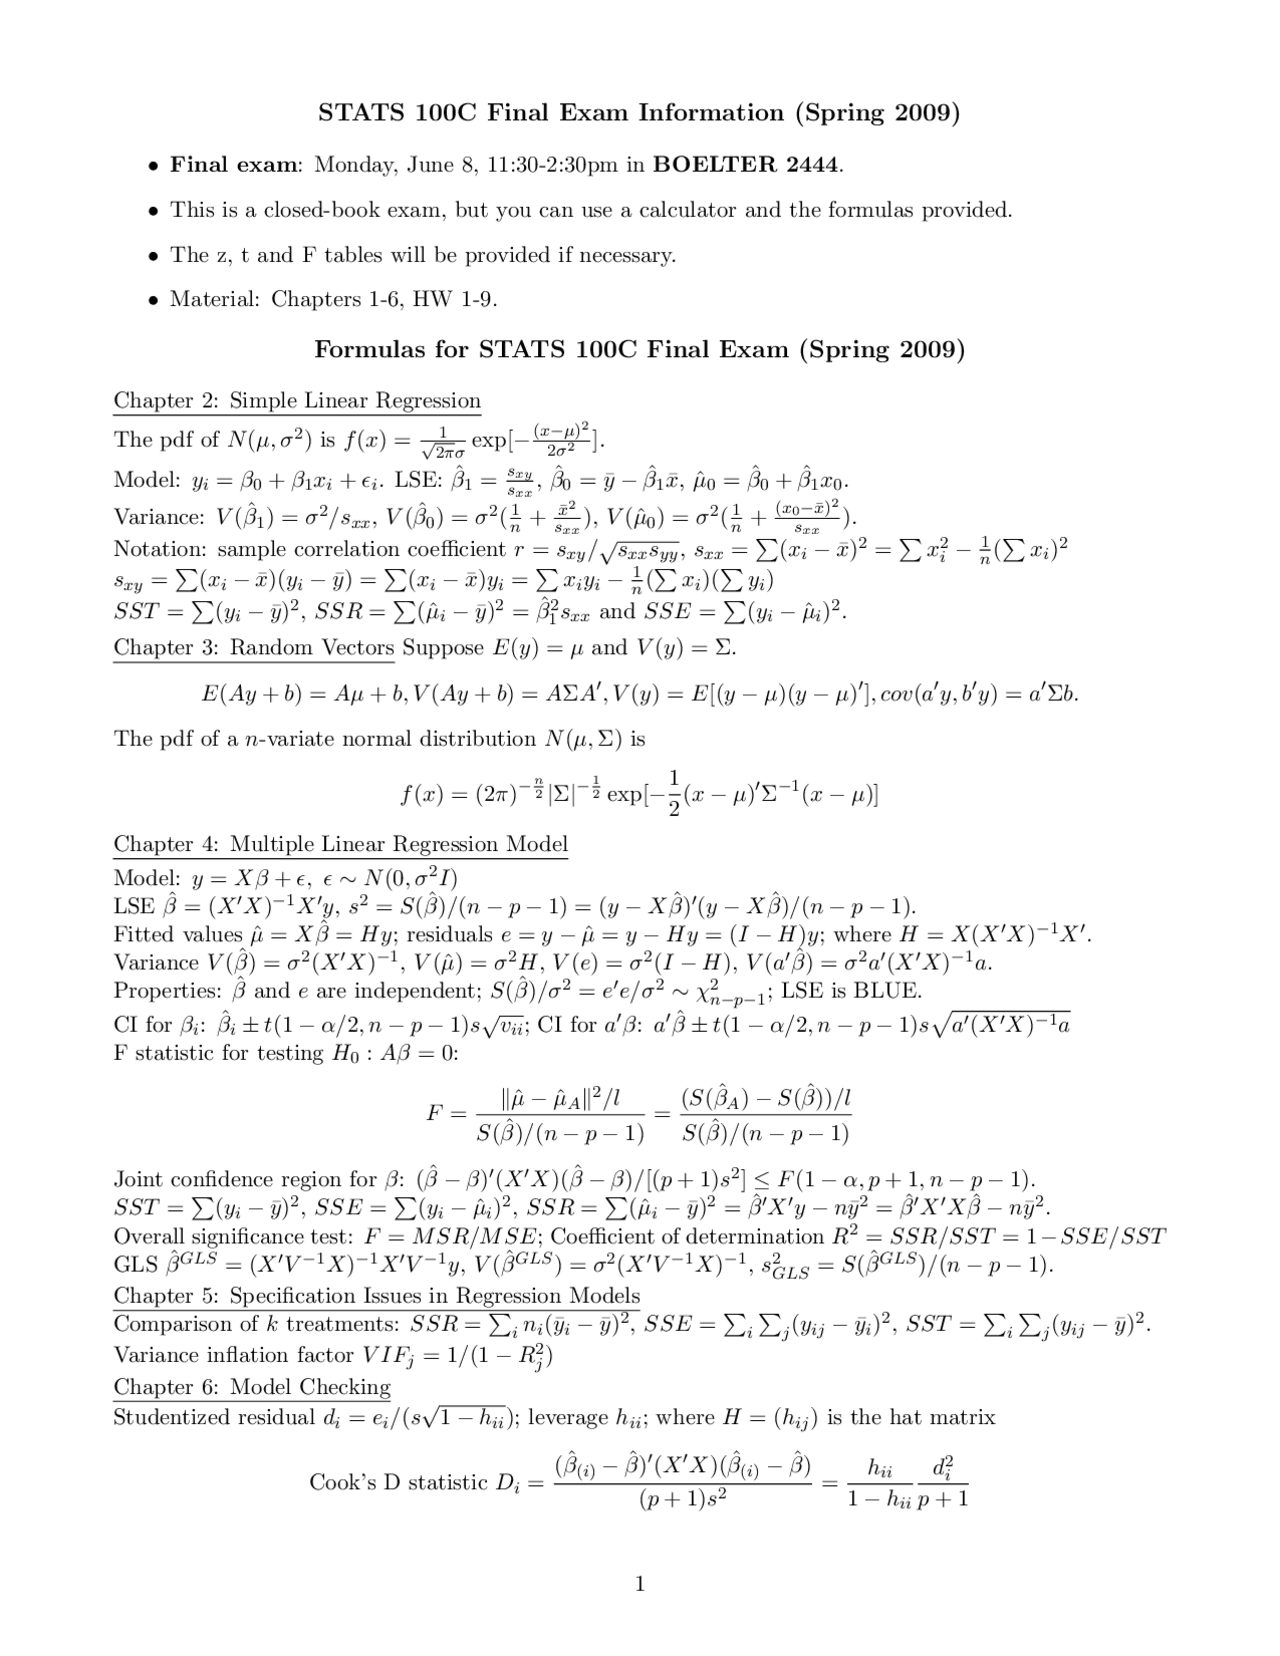 STATS 100C Final Exam Information (Spring 2009)
• Final exam: Monday, June 8, 11:30-2:30pm in BOELTER 2444.
• This is a closed-book exam, but you can use a calculator and the formulas provided.
• The z, t and F tables will be provided if necessary.
• Material: Chapters 1-6, HW 1-9.
Formulas for STATS 100C Final Exam (Spring 2009)
Chapter 2: Simple Linear Regression
The pdf of $N(\mu, \sigma^2)$ is $f(x) = \frac{1}{\sqrt{2\pi}\sigma} \exp[-\frac{(x-\mu)^2}{2\sigma^2}]$.
Model: $y_i = \beta_0 + \beta_1 x_i + \epsilon_i$. LSE: $\hat{\beta}_1 = \frac{s_{xy}}{s_{xx}}$, $\hat{\beta}_0 = \bar{y} - \hat{\beta}_1 \bar{x}$, $\hat{\mu}_0 = \hat{\beta}_0 + \hat{\beta}_1 x_0$.
Variance: $V(\hat{\beta}_1) = \sigma^2/s_{xx}$, $V(\hat{\beta}_0) = \sigma^2(\frac{1}{n} + \frac{\bar{x}^2}{s_{xx}})$, $V(\hat{\mu}_0) = \sigma^2(\frac{1}{n} + \frac{(x_0-\bar{x})^2}{s_{xx}})$.
Notation: sample correlation coefficient $r = s_{xy}/\sqrt{s_{xx}s_{yy}}$, $s_{xx} = \sum(x_i - \bar{x})^2 = \sum x_i^2 - \frac{1}{n}(\sum x_i)^2$
$s_{xy} = \sum(x_i - \bar{x})(y_i - \bar{y}) = \sum(x_i - \bar{x})y_i = \sum x_i y_i - \frac{1}{n}(\sum x_i)(\sum y_i)$
$SST = \sum(y_i - \bar{y})^2$, $SSR = \sum(\hat{\mu}_i - \bar{y})^2 = \hat{\beta}_1^2 s_{xx}$ and $SSE = \sum(y_i - \hat{\mu}_i)^2$.
Chapter 3: Random Vectors Suppose $E(y) = \mu$ and $V(y) = \Sigma$.
$E(Ay + b) = A\mu + b, V(Ay + b) = A\Sigma A', V(y) = E[(y - \mu)(y - \mu)'], cov(a'y, b'y) = a'\Sigma b.$
The pdf of a $n$-variate normal distribution $N(\mu, \Sigma)$ is
$f(x) = (2\pi)^{-\frac{n}{2}} |\Sigma|^{-\frac{1}{2}} \exp[-\frac{1}{2}(x - \mu)'\Sigma^{-1}(x - \mu)]$
Chapter 4: Multiple Linear Regression Model
Model: $y = X\beta + \epsilon, \ \epsilon \sim N(0, \sigma^2 I)$
LSE $\hat{\beta} = (X'X)^{-1}X'y$, $s^2 = S(\hat{\beta})/(n - p - 1) = (y - X\hat{\beta})'(y - X\hat{\beta})/(n - p - 1)$.
Fitted values $\hat{\mu} = X\hat{\beta} = Hy$; residuals $e = y - \hat{\mu} = y - Hy = (I - H)y$; where $H = X(X'X)^{-1}X'$.
Variance $V(\hat{\beta}) = \sigma^2(X'X)^{-1}$, $V(\hat{\mu}) = \sigma^2 H$, $V(e) = \sigma^2(I - H)$, $V(a'\hat{\beta}) = \sigma^2 a'(X'X)^{-1}a$.
Properties: $\hat{\beta}$ and $e$ are independent; $S(\hat{\beta})/\sigma^2 = e'e/\sigma^2 \sim \chi^2_{n-p-1}$; LSE is BLUE.
CI for $\beta_i$: $\hat{\beta}_i \pm t(1 - \alpha/2, n - p - 1)s\sqrt{v_{ii}}$; CI for $a'\beta$: $a'\hat{\beta} \pm t(1 - \alpha/2, n - p - 1)s\sqrt{a'(X'X)^{-1}a}$
F statistic for testing $H_0 : A\beta = 0$:
$F = \frac{\|\hat{\mu} - \hat{\mu}_A\|^2/l}{S(\hat{\beta})/(n - p - 1)} = \frac{(S(\hat{\beta}_A) - S(\hat{\beta}))/l}{S(\hat{\beta})/(n - p - 1)}$
Joint confidence region for $\beta$: $(\hat{\beta} - \beta)'(X'X)(\hat{\beta} - \beta)/[(p + 1)s^2] \leq F(1 - \alpha, p + 1, n - p - 1)$.
$SST = \sum(y_i - \bar{y})^2$, $SSE = \sum(y_i - \hat{\mu}_i)^2$, $SSR = \sum(\hat{\mu}_i - \bar{y})^2 = \hat{\beta}'X'y - n\bar{y}^2 = \hat{\beta}'X'X\hat{\beta} - n\bar{y}^2$.
Overall significance test: $F = MSR/MSE$; Coefficient of determination $R^2 = SSR/SST = 1 - SSE/SST$
GLS $\hat{\beta}^{GLS} = (X'V^{-1}X)^{-1}X'V^{-1}y$, $V(\hat{\beta}^{GLS}) = \sigma^2(X'V^{-1}X)^{-1}$, $s^2_{GLS} = S(\hat{\beta}^{GLS})/(n - p - 1)$.
Chapter 5: Specification Issues in Regression Models
Comparison of $k$ treatments: $SSR = \sum_i n_i(\bar{y}_i - \bar{y})^2$, $SSE = \sum_i \sum_j (y_{ij} - \bar{y}_i)^2$, $SST = \sum_i \sum_j (y_{ij} - \bar{y})^2$.
Variance inflation factor $VIF_j = 1/(1 - R_j^2)$
Chapter 6: Model Checking
Studentized residual $d_i = e_i/(s\sqrt{1 - h_{ii}})$; leverage $h_{ii}$; where $H = (h_{ij})$ is the hat matrix
Cook's D statistic $D_i = \frac{(\hat{\beta}_{(i)} - \hat{\beta})'(X'X)(\hat{\beta}_{(i)} - \hat{\beta})}{(p + 1)s^2} = \frac{h_{ii}}{1 - h_{ii}} \frac{d_i^2}{p + 1}$
1